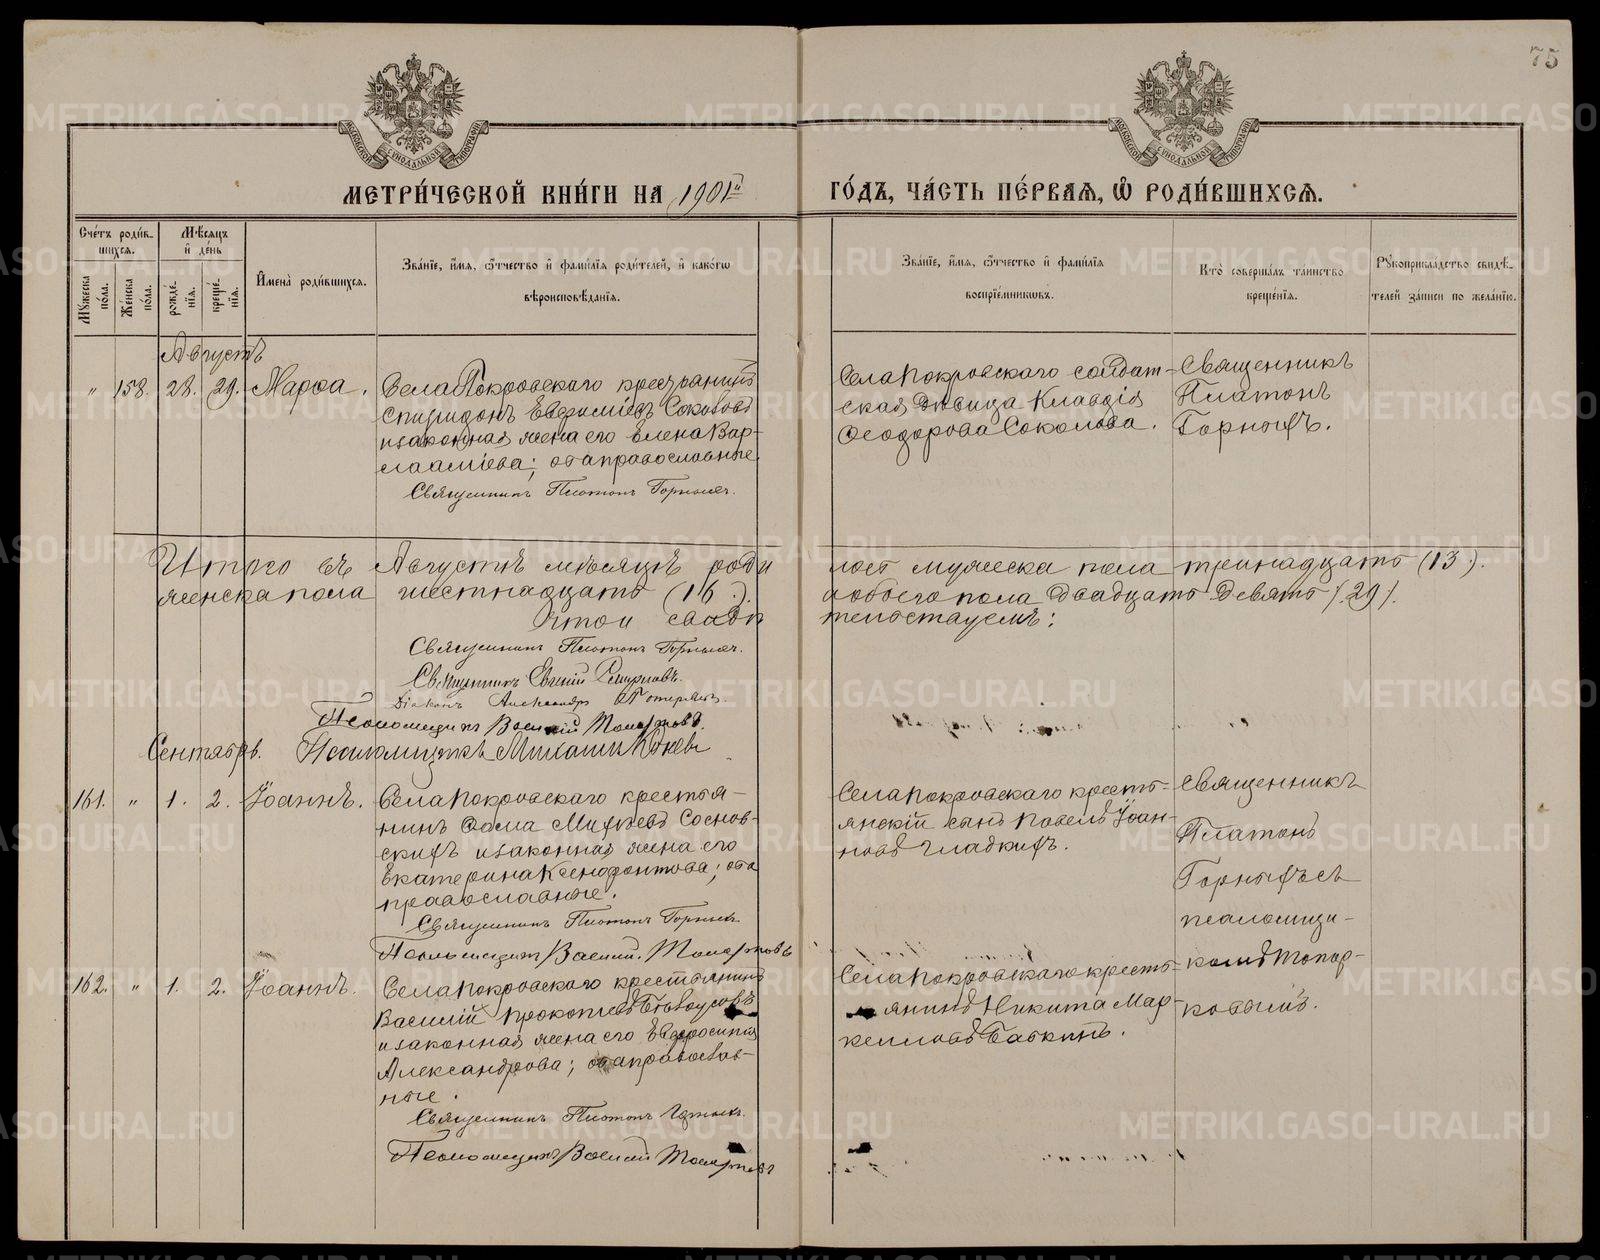 75
МОСКОВСКОЙ СѴНОДАЛЬНОЙ ТИПОГРАФІИ
МОСКОВСКОЙ СѴНОДАЛЬНОЙ ТИПОГРАФІИ
МЕТРИ́ЧЕСКОЙ КНИ́ГИ НА 1901й
ГО́ДЪ, ЧА́СТЬ ПЕ́РВАЯ, Ѽ РОДИ́ВШИХСЯ.
Сче́тъ роди́в-
шихся.
Мꙋжеска по́ла.
Же́нска по́ла.
Мѣ́сяцъ и҆ де́нь
рожде́-нїя.
креще́-нїя.
И҆мена̀ роди́вшихся.
Зва́нїе, и҆́мя, ѻ҆́тчество и҆ фами́лїя роди́телей, и҆ како́гѡ
вѣроисповѣ́данїя.
Зва́нїе, и҆́мя, ѻ҆́тчество и҆ фами́лїя
воспрїе́мникѡвъ.
Кто̀ соверша́лъ та́инство
креще́нїя.
Рꙋкоприкла́дство свидѣ́-
телей за́писи по жела́нїю.
Августъ
" 158. 28. 29. Марѳа.
Села Покровскаго крестьянинъ
Спиридонъ Евфиміевъ Соколовъ
и законная жена его Елена Вар-
лаамiева; оба православные
Священникъ Платонъ Горныхъ.
Села Покровскаго солдат-
ская дѣвица Клавдія
Ѳеодорова Соколова.
Священникъ
Платонъ
Горныхъ.
Итого въ Августѣ мѣсяцѣ роди лось мужеска пола тринадцать (13.).
женска пола шестнадцать (16.). и обоего пола двадцать девять /.29/.
Въ томъ свидѣ тельствуемъ:
Священникъ Платонъ Горныхъ.
Священникъ Евгеній Смирновъ.
Діаконъ Александръ
Псаломщикъ Василій Топорковъ.
Сентябрь. Псаломщикъ Михаилъ
161. " 1. 2. Іоаннъ.
Села Покровскаго крестья-
нинъ Ѳома Матѳѣевъ Соснов-
скихъ и законная жена его
Екатерина Ксенофонтова; оба
православные.
Священникъ Платонъ Горныхъ
Псаломщикъ Василій Топорковъ
Села Покровскаго кресть-
янскій сынъ Павелъ Іоан-
новъ Гладкихъ.
Священникъ
Платонъ
Горныхъ съ
псаломщи-
комъ Топор-
ковымъ.
162. " 1. 2. Іоаннъ.
Села Покровскаго крестьянинъ
Василій Прокопіевъ Бѣлоусовъ
и законная жена его Евфросинія
Александрова; оба православ-
ные.
Священникъ Платонъ Горныхъ.
Псаломщикъ Василій Топорковъ
Села Покровскаго кресть-
янинъ Никита Мар-
келловъ Бабкинъ.
METRIKI.GASO-URAL.RU